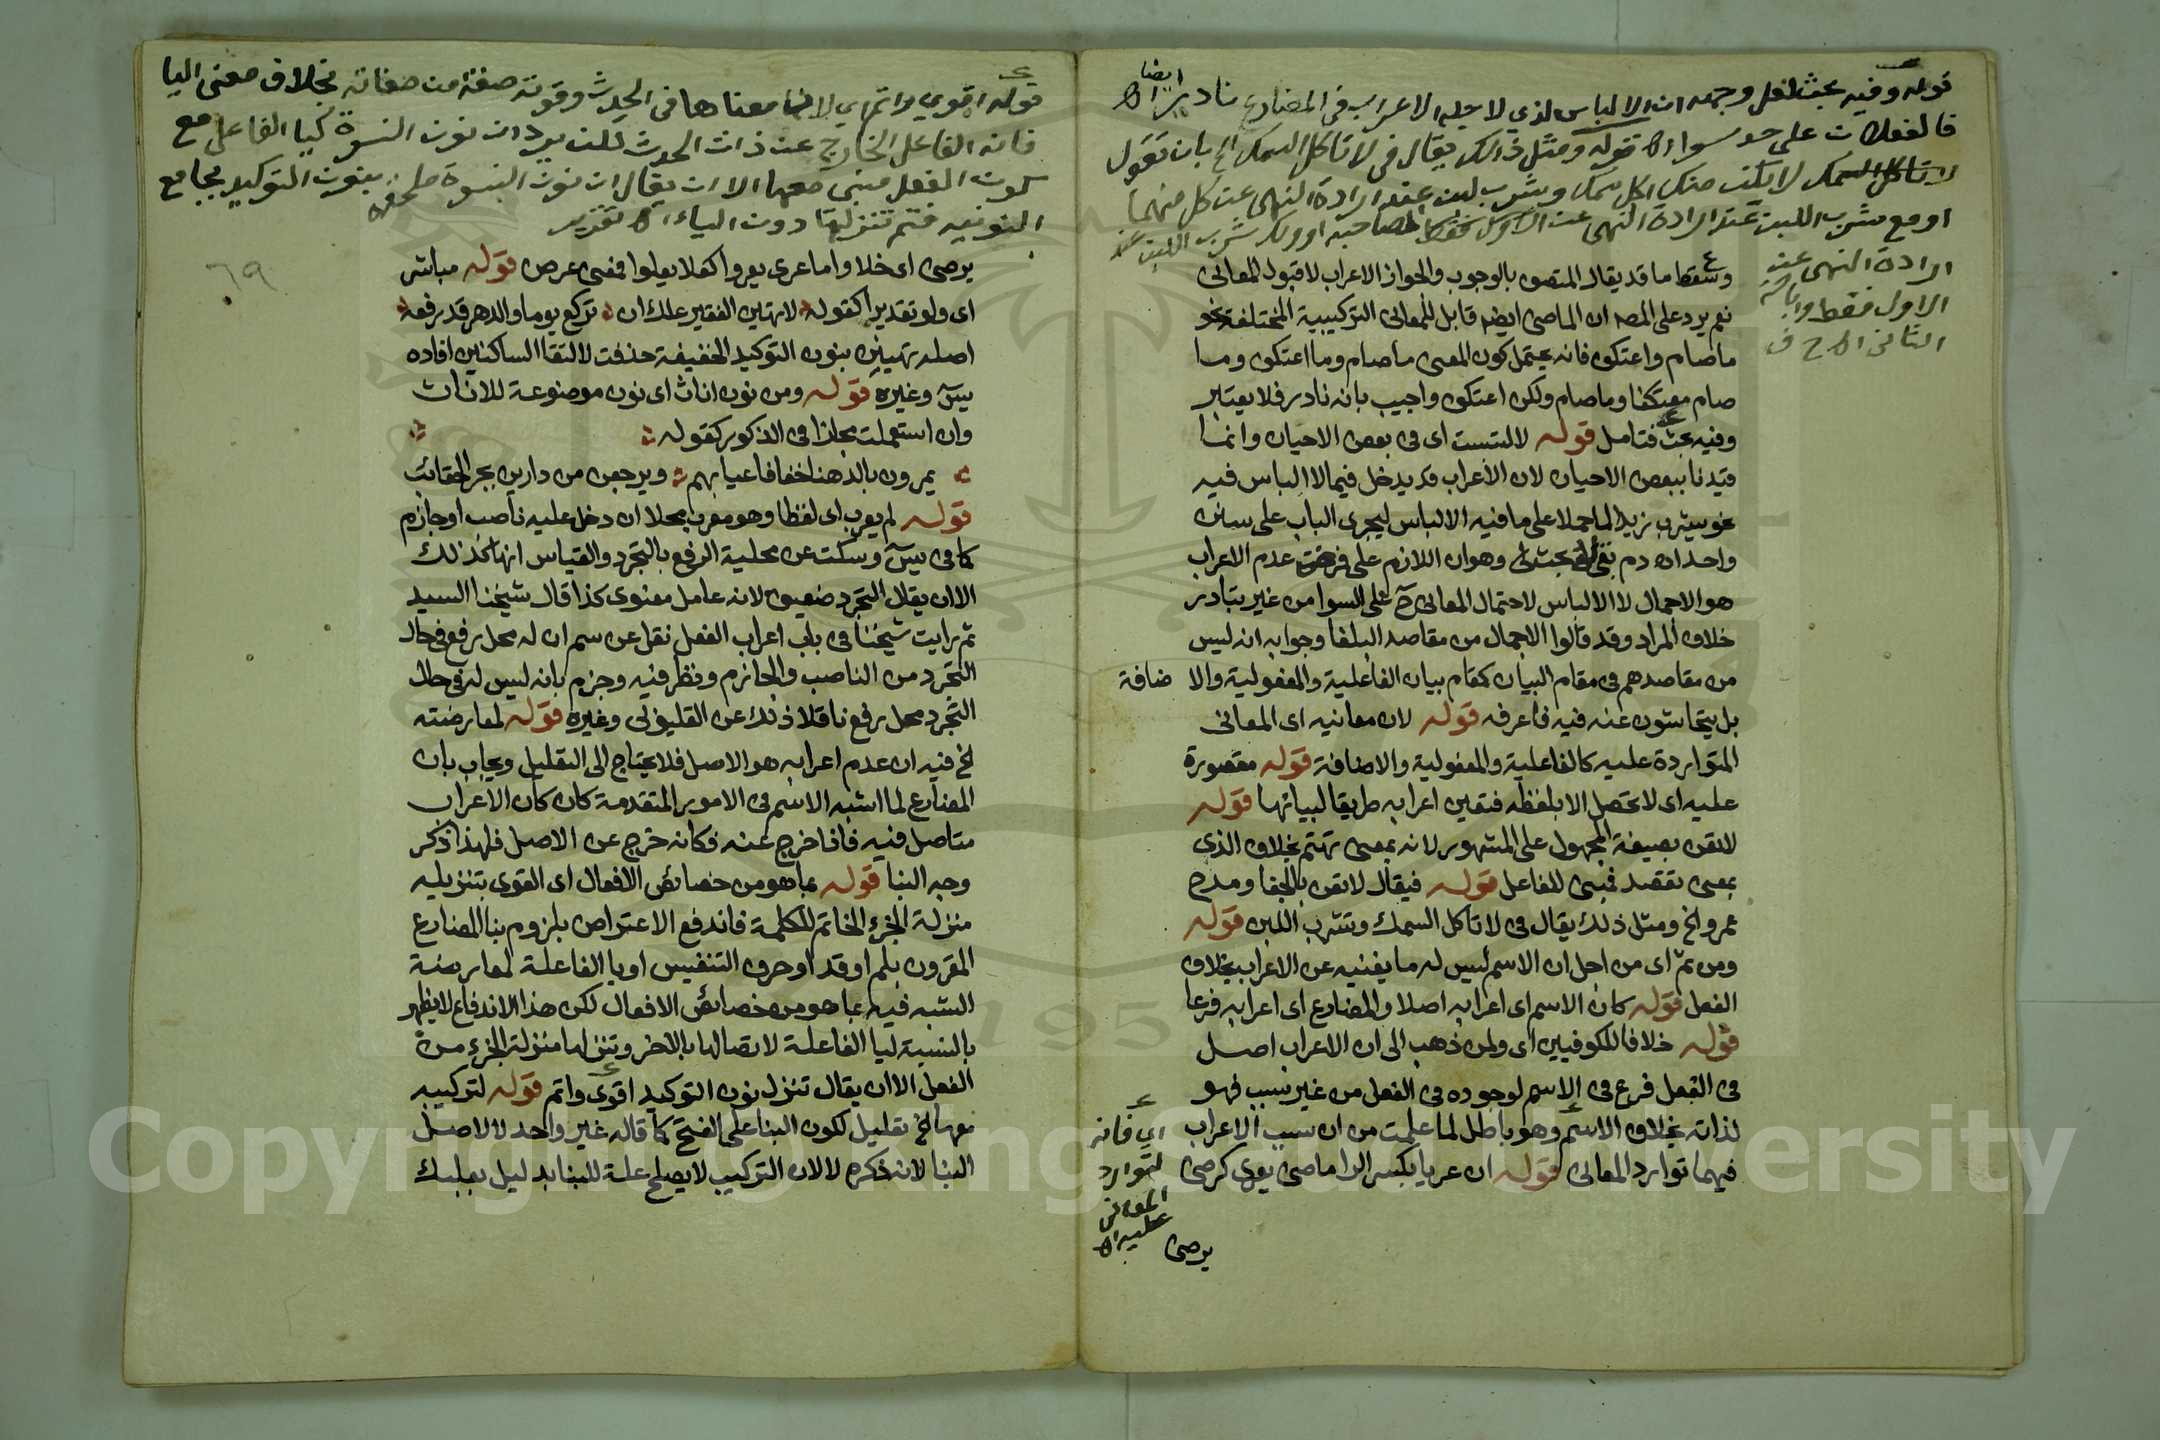 قوله وفيه بحث لعل وجهه ان الالباس الذي لا يزيله الاعراب في المضارع نادر ايضا اه
فالفعلان على حد سواء اه قوله ومثل ذلك يقال في لا تاكل السمك الخ بان تقول
لا تاكل السمك لا يكن منك اكل سمك وشرب لبن عند ارادة النهي عن كل منهما
او مع شرب اللبن عند ارادة النهي عن الاول فقط المصاحبه او ولك شرب اللبن عند
ارادة النهي عن
الاول فقط واباحة
الثاني اه
وسقط ما قد يقال المتصف بالوجوب والجواز الاعراب لا قبول المعاني
نعم يرد على المصـ ان الماضي ايضا قابل للمعاني التركيبية المختلفة نحو
ما صام واعتكف فانه يحتمل كون المعنى ما صام وما اعتكف وما
صام معتكفا وما صام ولكن اعتكف واجيب بانه نادر فلا يعتبر
وفيه بحث فتامل قوله لالتبست اى فى بعض الاحيان وانما
قيدنا ببعض الاحيان لان الاعراب قد يدخل فيما لا الباس فيه
نحو يشرب زيد الماء حملا على ما فيه الالباس ليجرى الباب على سنن
واحد اه دم بقى بحث وهو ان اللازم على فرض عدم الاعراب
هو الاجمال لا الالباس لاحتمال المعانى ح على السوا من غير تبادر
خلاف المراد وقد قالوا الاجمال من مقاصد البلغا وجوابه انه ليس
من مقاصدهم فى مقام البيان كمقام بيان الفاعلية والمفعولية والا ضافة
بل يتحاشون عنه فيه فاعرفه قوله لان معانيه اى المعانى
المتواردة عليه كالفاعلية والمفعولية والاضافة قوله مقصورة
عليه اى لا تحصل الا بلفظه فتعين اعرابه طريقا لبيانها قوله
لاتعن بصيغة المجهول على المشهور لانه بمعنى تهتم بخلاف الذى
بمعنى تقصد فمبنى للفاعل قوله فيقال لاتعن بالجفا ومدح
عمرو الخ ومثل ذلك يقال فى لا تاكل السمك وتشرب اللبن قوله
ومن ثم اى من اجل ان الاسم ليس له ما يغنيه عن الاعراب بخلاف
الفعل قوله كان الاسم اى اعرابه اصلا والمضارع اى اعرابه فرعا
قوله خلافا للكوفيين اى ولمن ذهب الى ان الاعراب اصل
فى الفعل فرع فى الاسم لوجوده فى الفعل من غير سبب فهو
لذاته بخلاف الاسم وهو باطل لما علمت من ان سبب الاعراب
فيهما توارد المعانى قوله ان عريا بكسر الرا ماضى يعرى كرضى
اي فانه
لتوارد
المعاني
عليه اه
يرضى
قوله اقوي واتم اي لان معناها في الحدث وقوته صفة من صفاته بخلاف معنى اليا
فانه الفاعل الخارج عن ذات الحدث لكن يرد ان نون النسوة كيا الفاعل مع
كون الفعل مبني معها الا ان يقال ان نون النسوة ملحقة بنون التوكيد بجامع
النونيه فتم تنزيلها دون الياء اه تقرير
٦٩
يرضى اى خلا واما عرى يعروا كعلا يعلوا فمعنى عرض قوله مباشر
اى ولو تقديرا كقوله لا تهين الفقير علك ان تركع يوما والدهر قد رفعه
اصله تهينن بنون التوكيد الخفيفة حذفت لالتقا الساكنين افاده
يسٓ وغيره قوله ومن نون اناث اى نون موضوعة للاناث
وان استعملت مجازا فى الذكور كقوله
يمرون بالدهنا خفافا عيابهم ويرجعن من دارين بجر الحقائب
قوله لم يعرب اى لفظا وهو معرب محلا ان دخل عليه ناصب او جازم
كما فى يسٓ وسكت عن محلية الرفع بالتجرد والقياس انها كذلك
الا ان يقال التجرد ضعيف لانه عامل معنوى كذا قال شيخنا السيد
ثم رايت شيخنا فى باب اعراب الفعل نقل عن سم ان له محل رفع فى حال
التجرد من الناصب والجازم ونظر فيه وجزم بانه ليس له فى حال
التجرد محل رفع ناقلا ذلك عن القليوبى وغيره قوله لمعارضته
الخ فيه ان عدم اعرابه هو الاصل فلا يحتاج الى التعليل ويجاب بان
المضارع لما اشبه الاسم فى الامور المتقدمة كان كان الاعراب
متاصل فيه فاذا خرج عنه فكانه خرج عن الاصل فلهذا ذكر
وجه البنا قوله بما هو من خصائص الافعال اى القوى بتنزيله
منزلة الجزء الخاتم للكلمة فاندفع الاعتراض بلزوم بنا المضارع
المقرون بلم او قد او حرف التنفيس او يا الفاعلة لمعارضة
الشبه فيه بما هو من خصائص الافعال لكن هذا الاندفاع لا يظهر
بالنسبة ليا الفاعلة لاتصالها بالاخر وتنزلها منزلة الجزء من
الفعل الا ان يقال تنزل نون التوكيد اقوى واتم قوله لتركيبه
معها الخ تعليل لكون البنا على الفتح كما قاله غير واحد لا لاصل
البنا لانه ذكره لا لان التركيب لا يصلح علة للبنا بدليل بعلبك
Copyright © King Saud University
1957